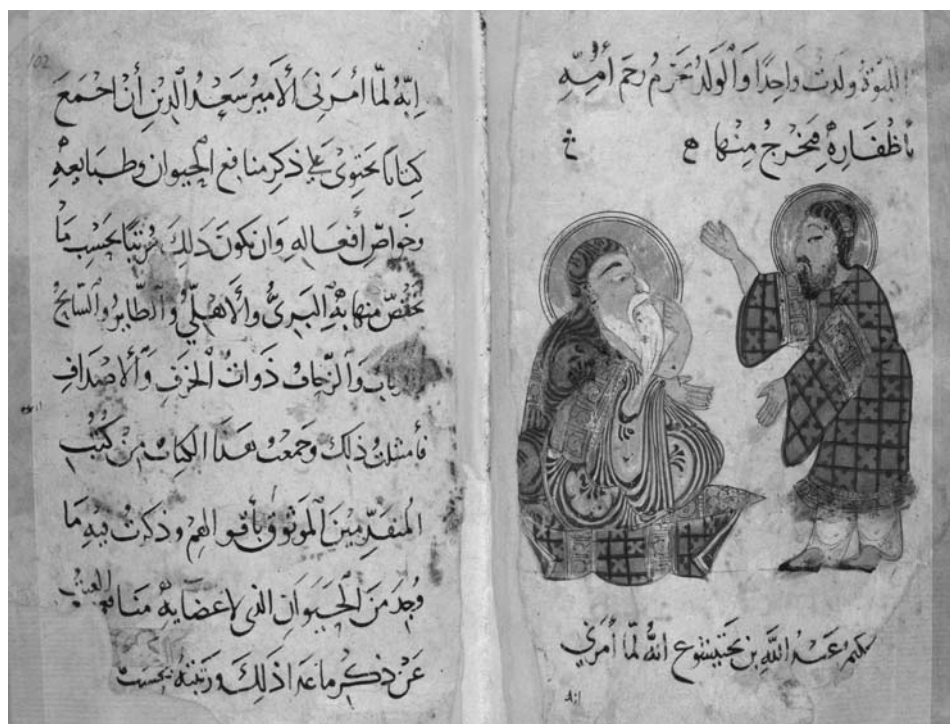 اللبوة ولدت وَاحِدًا وَالْوَلَدُ رحم أُمِّهِ
بأظفاره فيخرج مِنْها
عبد اللَّه بن بختيشوع انهُ لمّا أمرني
102
اِنّه لمّا أمَرَني الأمير سَعْد الدين أن اجمَعَ
كتابا يحتوى على ذكر منافع الحيوان وطبايعه
وخواصّ أفعاله وان نكون ذلك مرتبا بحسب مَا
يختصّ منها به البَرىُّ والأهلىُّ والطّاير والسّابح
والزحاف ذوات الخزف والأصداف
ذلك وجمعت هذا الكتاب من كُتُب
المتقدّمين الموثوق بأقوالهم وذكرت فيه ما
وجد من الحيوان الذى لاعضايه منافع
عن ذكر ما عدا ذلك ورتبته بحسب